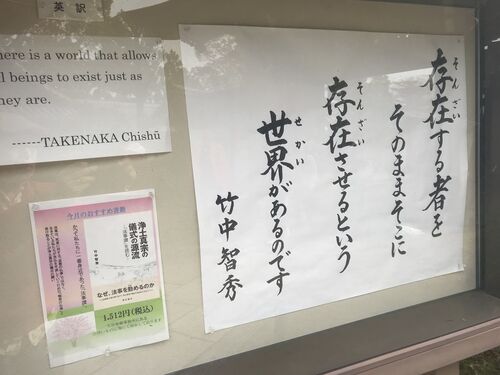 英訳
here is a world that allows
ll beings to exist just as
hey are.
------TAKENAKA Chishū
存在する者を
そんざい
そのままそこに
存在させるという
そんざい
世界があるのです
せかい
竹中智秀
今月のおすすめ書籍
浄土真宗の
儀式の源流
なぜ、法事を勤めるのか
1,512円(税込)